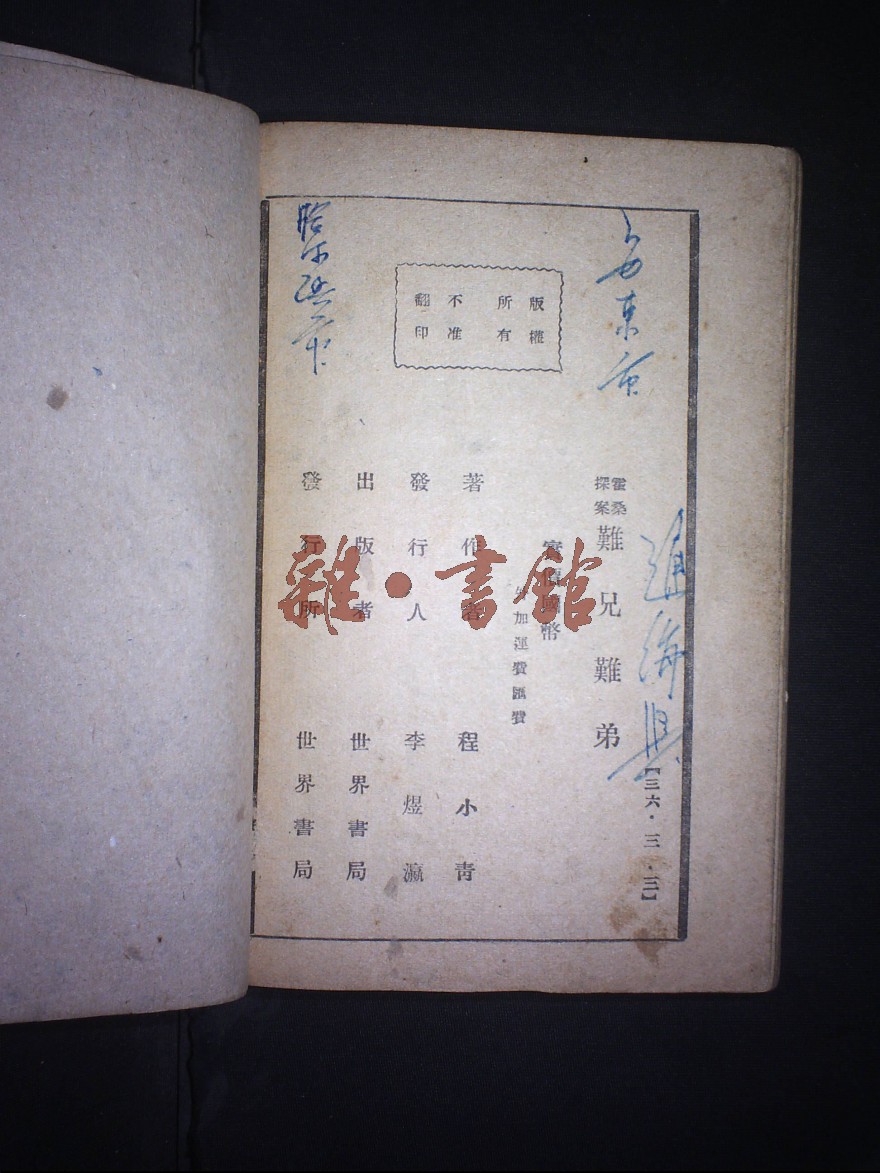 版權
所有
不准
翻印
【三六·三·三】
霍桑
探案
難兄難弟
實價國幣
外加運費匯費
著作者 程小青
發行人 李煜瀛
出版者 世界書局
發行所 世界書局
雜·書館
哈尔滨市